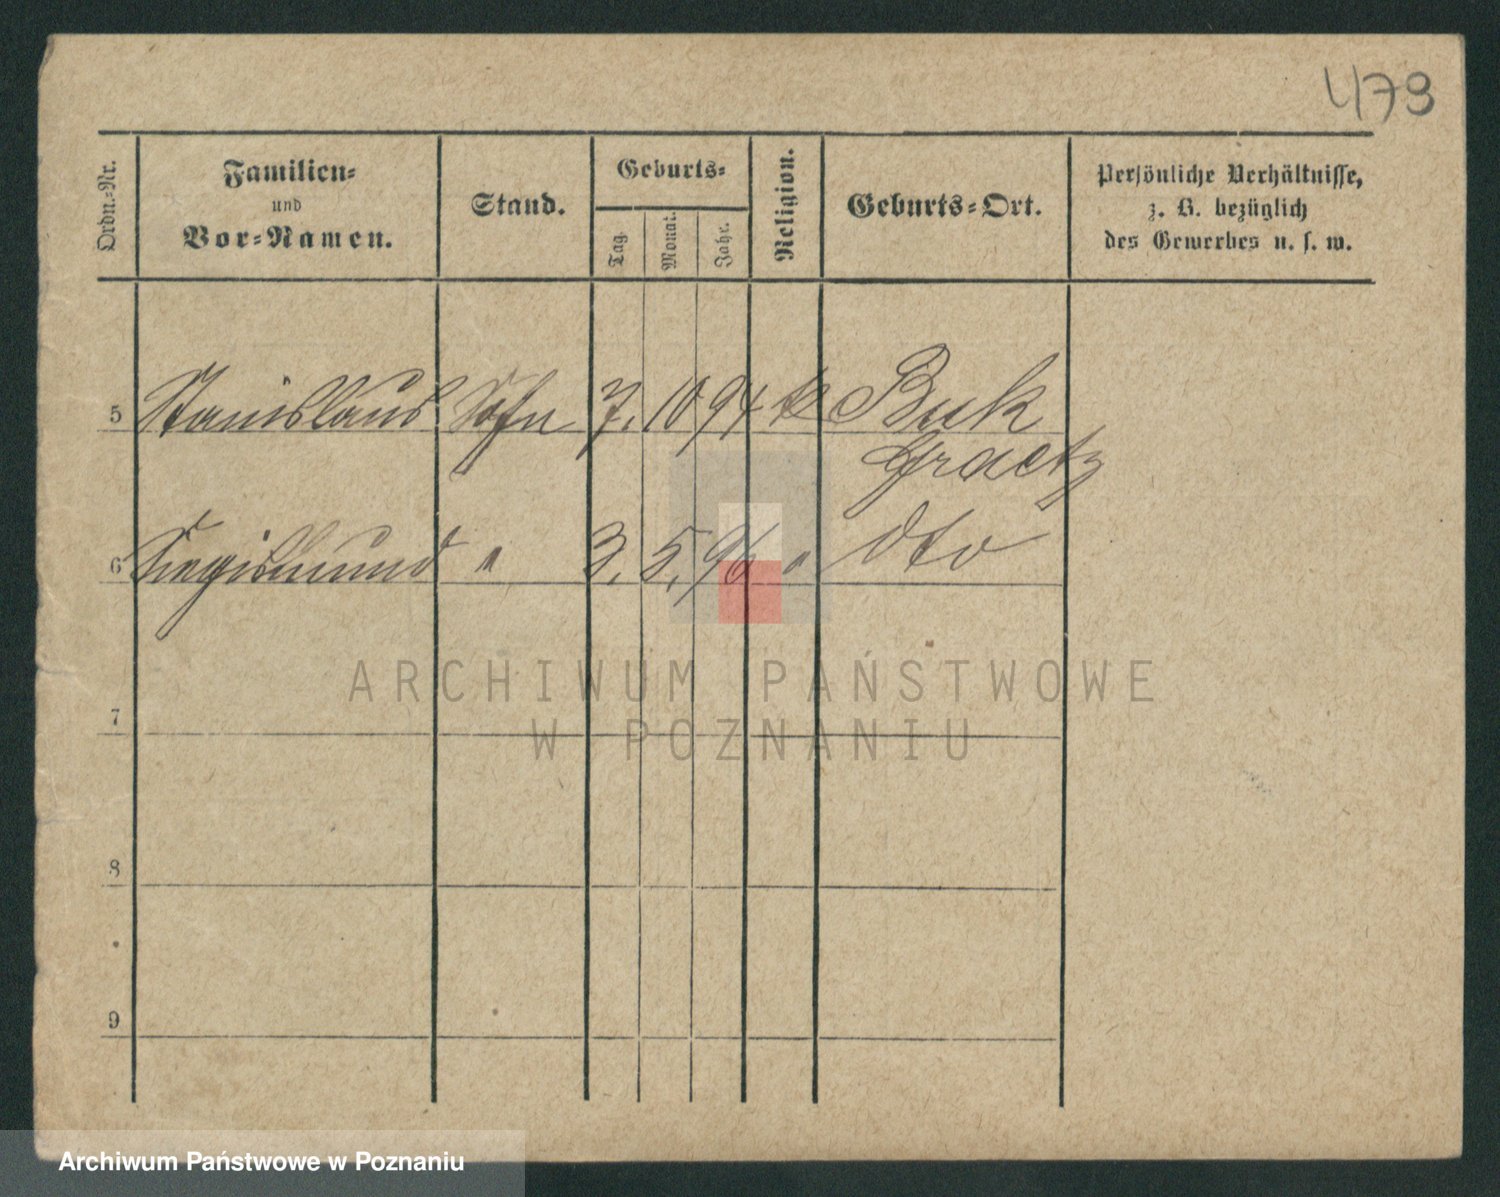 479
Ordn.-Nr.
Familien-
und
Vor-Namen.
Stand.
Geburts-
Tag.
Monat.
Jahr.
Religion.
Geburts-Ort.
Persönliche Verhältnisse,
z. B. bezüglich
des Gewerbes u. s. w.
5 Stanislaus Sohn 7. 10 94 k Buk
Graetz
6 Siegismund " 3. 5. 96 " dto
7
8
9
ARCHIWUM PAŃSTWOWE
W POZNANIU
Archiwum Państwowe w Poznaniu